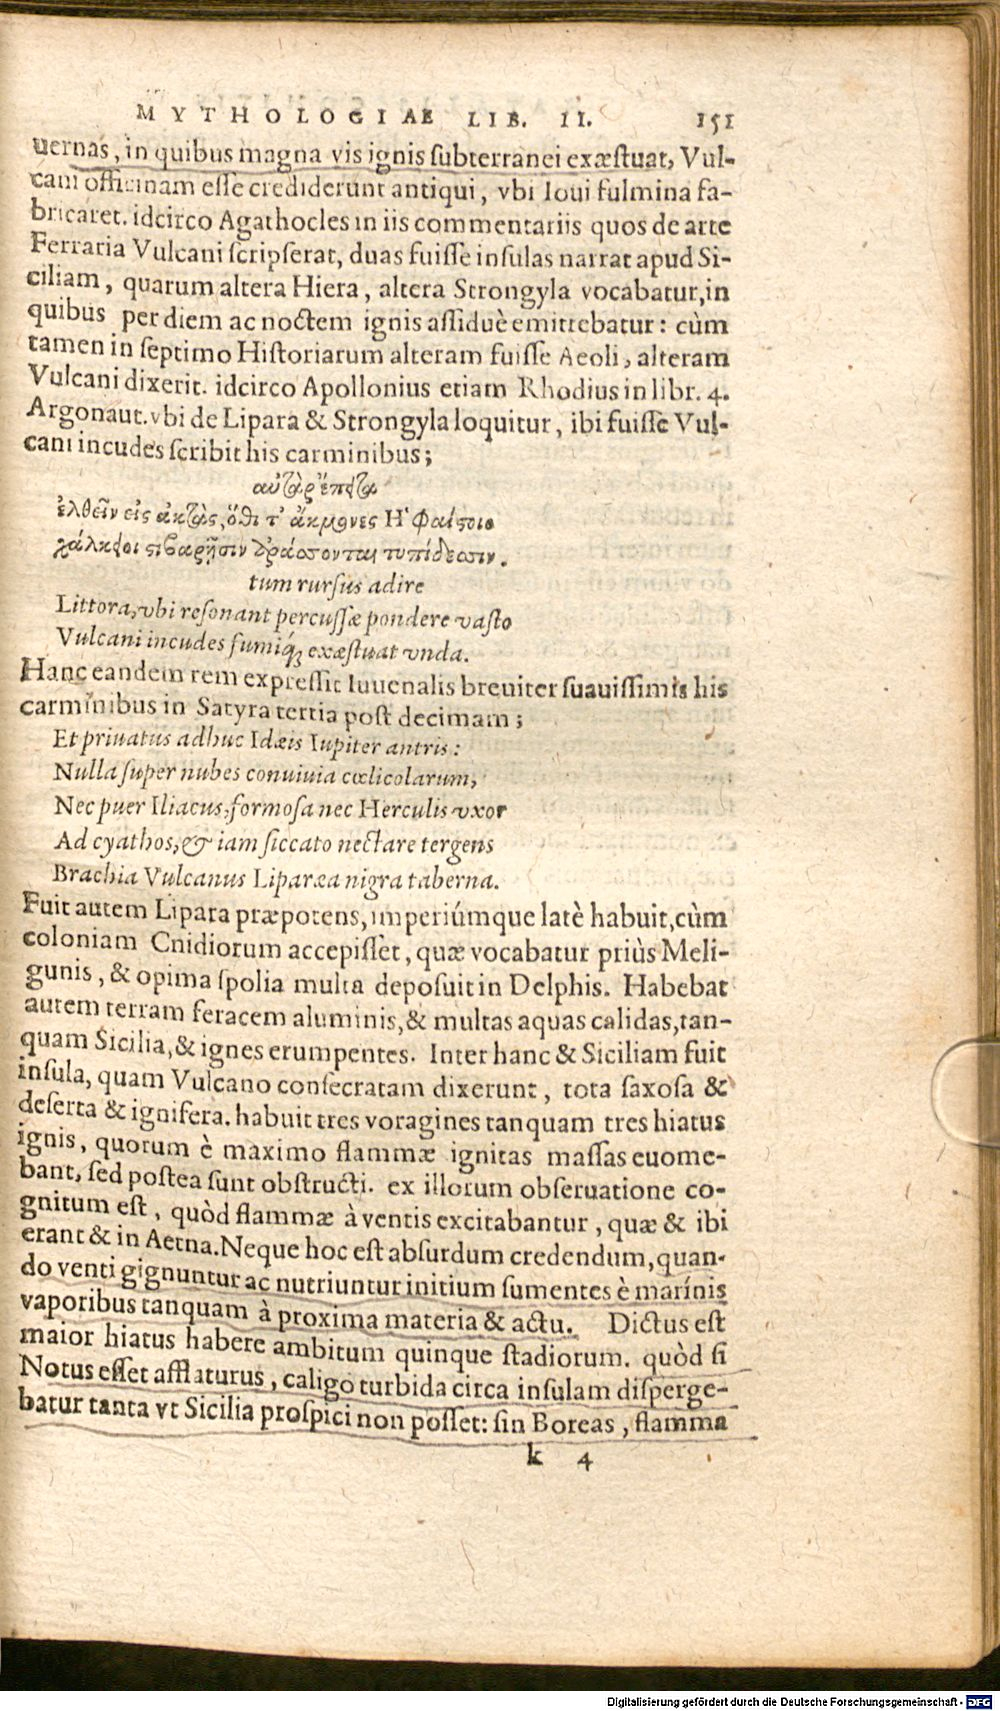 MYTHOLOGIAE LIB. II. 151
uernas, in quibus magna vis ignis subterranei exæstuat, Vul-
cani officinam esse crediderunt antiqui, vbi Ioui fulmina fa-
bricaret. idcirco Agathocles in iis commentariis quos de arte
Ferraria Vulcani scripserat, duas fuisse insulas narrat apud Si-
ciliam, quarum altera Hiera, altera Strongyla vocabatur, in
quibus per diem ac noctem ignis assiduè emittebatur: cùm
tamen in septimo Historiarum alteram fuisse Aeoli, alteram
Vulcani dixerit. idcirco Apollonius etiam Rhodius in libr. 4.
Argonaut. vbi de Lipara & Strongyla loquitur, ibi fuisse Vul-
cani incudes scribit his carminibus;
αὐτὰρ ἔπειτα
ἐλθεῖν εἰς ἀκτὰς, ὅθι τ' ἄκμονες Ἡφαίστοιο
χάλκειοι στιβαρῇσιν ἀράσσονται τυπίδεσσιν.
tum rursus adire
Littora, vbi resonant percussæ pondere vasto
Vulcani incudes fumiq́; exæstuat vnda.
Hanc eandem rem expressit Iuuenalis breuiter suauissimis his
carminibus in Satyra tertia post decimam;
Et priuatus adhuc Idæis Iupiter antris:
Nulla super nubes conuiuia cœlicolarum,
Nec puer Iliacus, formosa nec Herculis vxor
Ad cyathos, & iam siccato nectare tergens
Brachia Vulcanus Liparæa nigra taberna.
Fuit autem Lipara præpotens, imperiúmque latè habuit, cùm
coloniam Cnidiorum accepisset, quæ vocabatur priùs Meli-
gunis, & opima spolia multa deposuit in Delphis. Habebat
autem terram feracem aluminis, & multas aquas calidas, tan-
quam Sicilia, & ignes erumpentes. Inter hanc & Siciliam fuit
insula, quam Vulcano consecratam dixerunt, tota saxosa &
deserta & ignifera. habuit tres voragines tanquam tres hiatus
ignis, quorum è maximo flammæ ignitas massas euome-
bant, sed postea sunt obstructi. ex illorum obseruatione co-
gnitum est, quòd flammæ à ventis excitabantur, quæ & ibi
erant & in Aetna. Neque hoc est absurdum credendum, quan-
do venti gignuntur ac nutriuntur initium sumentes è marinis
vaporibus tanquam à proxima materia & actu. Dictus est
maior hiatus habere ambitum quinque stadiorum. quòd si
Notus esset afflaturus, caligo turbida circa insulam disperge-
batur tanta vt Sicilia prospici non posset: sin Boreas, flamma
k 4
Digitalisierung gefördert durch die Deutsche Forschungsgemeinschaft - DFG